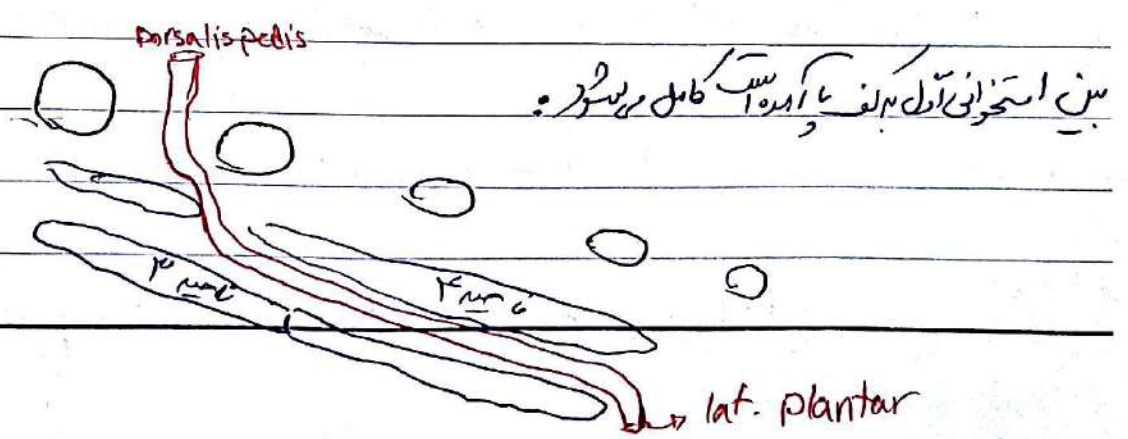 Dorsalis pedis
بین استخوانی اول به کف پا آمده است کامل می‌شود.
ناحیه ۳
ناحیه ۴
lat. plantar